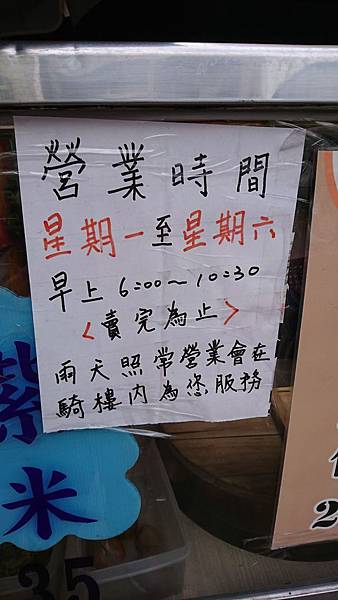 營業時間
星期一至星期六
早上 6:00～10:30
<賣完為止>
雨天照常營業會在
騎樓內為您服務
紫
米
35
2